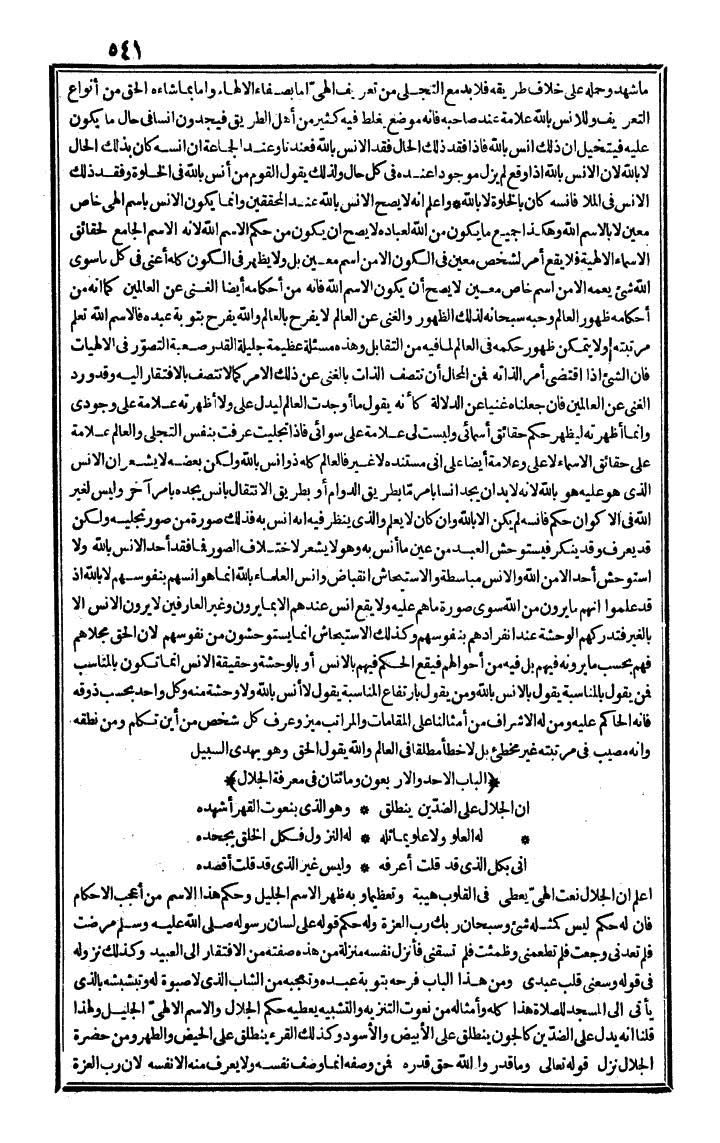 ٥٤١
ماشهد وحمله على خلاف طريقه فلا بد مع التجلى من تعريف الهىّ اما بصفاء الالهام واما بماشاءه الحق من أنواع
التعريف وللانس بالله علامة عند صاحبه فانه موضع يغلط فيه كثير من أهل الطريق فيجدون انسا فى حال ما يكون
عليه فيتخيل ان ذلك انس بالله فاذا فقد ذلك الحال فقد الانس بالله فعندنا وعند الجاعة ان انسه كان بذلك الحال
لا بالله لان الانس بالله اذا وقع لم يزل موجودا عنده فى كل حال ولذلك يقول القوم من أنس بالله فى الخلوة وفقد ذلك
الانس فى الملا فانسه كان بالخلوة لا بالله * واعلم انه لا يصح الانس بالله عند المحققين وانما يكون الانس باسم الهى خاص
معين لا بالاسم الله وهكذا جميع ما يكون من الله لعباده لا يصح ان يكون من حكم الاسم الله لانه الاسم الجامع لحقائق
الاسماء الالهية فلا يقع أمر لشخص معين فى الكون الا من اسم معين بل ولا يظهر فى الكون كله أعنى فى كل ماسوى
الله شئ يعمه الا من اسم خاص معين لا يصح أن يكون الاسم الله فانه من أحكامه أيضا الغنى عن العالمين كما انه من
أحكامه ظهور العالم وحبه سبحانه لذلك الظهور والغنى عن العالم لا يفرح بالعالم والله يفرح بتوبة عبده فالاسم الله تعلم
مرتبته ولا يتمكن ظهور حكمه فى العالم لما فيه من التقابل وهذه مسئلة عظيمة جليلة القدر صعبة التصوّر فى الالهيات
فان الشئ اذا اقتضى أمر الذاته فمن المحال أن تتصف الذات بالغنى عن ذلك الامر كما لا تتصف بالافتقار اليه وقد ورد
الغنى عن العالمين فان جعلناه غنيا عن الدلالة كأنه يقول ما أوجدت العالم ليدل على ولا أظهرته علامة على وجودى
وانما أظهرته ليظهر حكم حقائق أسمائى وليست لى علامة على سوائى فاذا تجليت عرفت بنفس التجلى والعالم علامة
على حقائق الاسماء لا على وعلامة أيضا على انى مستنده لا غير فالعالم كله ذو انس بالله ولكن بعضه لا يشعر ان الانس
الذى هو عليه هو بالله لانه لا بد ان يجد انسا بامر مّا بطريق الدوام أو بطريق الانتقال بانس يجده بامر آخر وليس لغير
الله فى الاكوان حكم فانسه لم يكن الا بالله وان كان لا يعلم والذى ينظر فيه انه انس به فذلك صورة من صور تجليه ولكن
قد يعرف وقد ينكر فيستوحش العبد من عين ما أنس به وهو لا يشعر لاختلاف الصور فما فقد أحد الانس بالله ولا
استوحش أحد الا من الله والانس مباسطة والاستيحاش انقباض وانس العلماء بالله انما هو انسهم بنفوسهم لا بالله اذ
قد علموا انهم ما يرون من الله سوى صورة ما هم عليه ولا يقع انس عندهم الا بما يرون وغير العارفين لا يرون الانس الا
بالغير فتدركهم الوحشة عند انفرادهم بنفوسهم وكذلك الاستيحاش انما يستوحشون من نفوسهم لان الحق مجلاهم
فهم بحسب ما يرونه فيهم بل فيه من أحوالهم فيقع الحكم فيهم بالانس أو بالوحشة وحقيقة الانس انما تكون بالمناسب
فمن يقول بالمناسبة يقول بالانس بالله ومن يقول بارتفاع المناسبة يقول لا أنس بالله ولا وحشة منه وكل واحد بحسب ذوقه
فانه الحاكم عليه ومن له الاشراف من أمثالنا على المقامات والمراتب ميز وعرف كل شخص من أين تكلم ومن نطقه
وانه مصيب فى مرتبته غير مخطئ بل لا خطأ مطلقا فى العالم والله يقول الحق وهو يهدى السبيل
﴿الباب الاحد والاربعون ومائتان فى معرفة الجلال﴾
ان الجلال على الضدّين ينطلق * وهو الذى بنعوت القهر أشهده
* له العلو ولا علو يماثله * له النزول فكل الخلق يجحده
انى بكل الذى قد قلت أعرفه * وليس غير الذى قد قلت أقصده
اعلم ان الجلال نعت الهىّ يعطى فى القلوب هيبة وتعظيما وبه ظهر الاسم الجليل وحكم هذا الاسم من أعجب الاحكام
فان له حكم ليس كمثله شئ وسبحان ربك رب العزة وله حكم قوله على لسان رسوله صلى الله عليه وسلم مرضت
فلم تعدنى وجعت فلم تطعمنى وظمئت فلم تسقنى فأنزل نفسه منزلة من هذه صفته من الافتقار الى العبيد وكذلك نزوله
فى قوله وسعنى قلب عبدى ومن هذا الباب فرحه بتوبة عبده وتعجبه من الشاب الذى لا صبوة له وتبشبشه بالذى
يأتى الى المسجد للصلاة هذا كله وأمثاله من نعوت التنزيه والتشبيه يعطيه حكم الجلال والاسم الالهىّ الجليل ولهذا
قلنا انه يدل على الضدّين كالجون ينطلق على الأبيض والأسود وكذلك القرء ينطلق على الحيض والطهر ومن حضرة
الجلال نزل قوله تعالى وما قدروا الله حق قدره فمن وصفه انما وصف نفسه ولا يعرف منه الا نفسه لان رب العزة